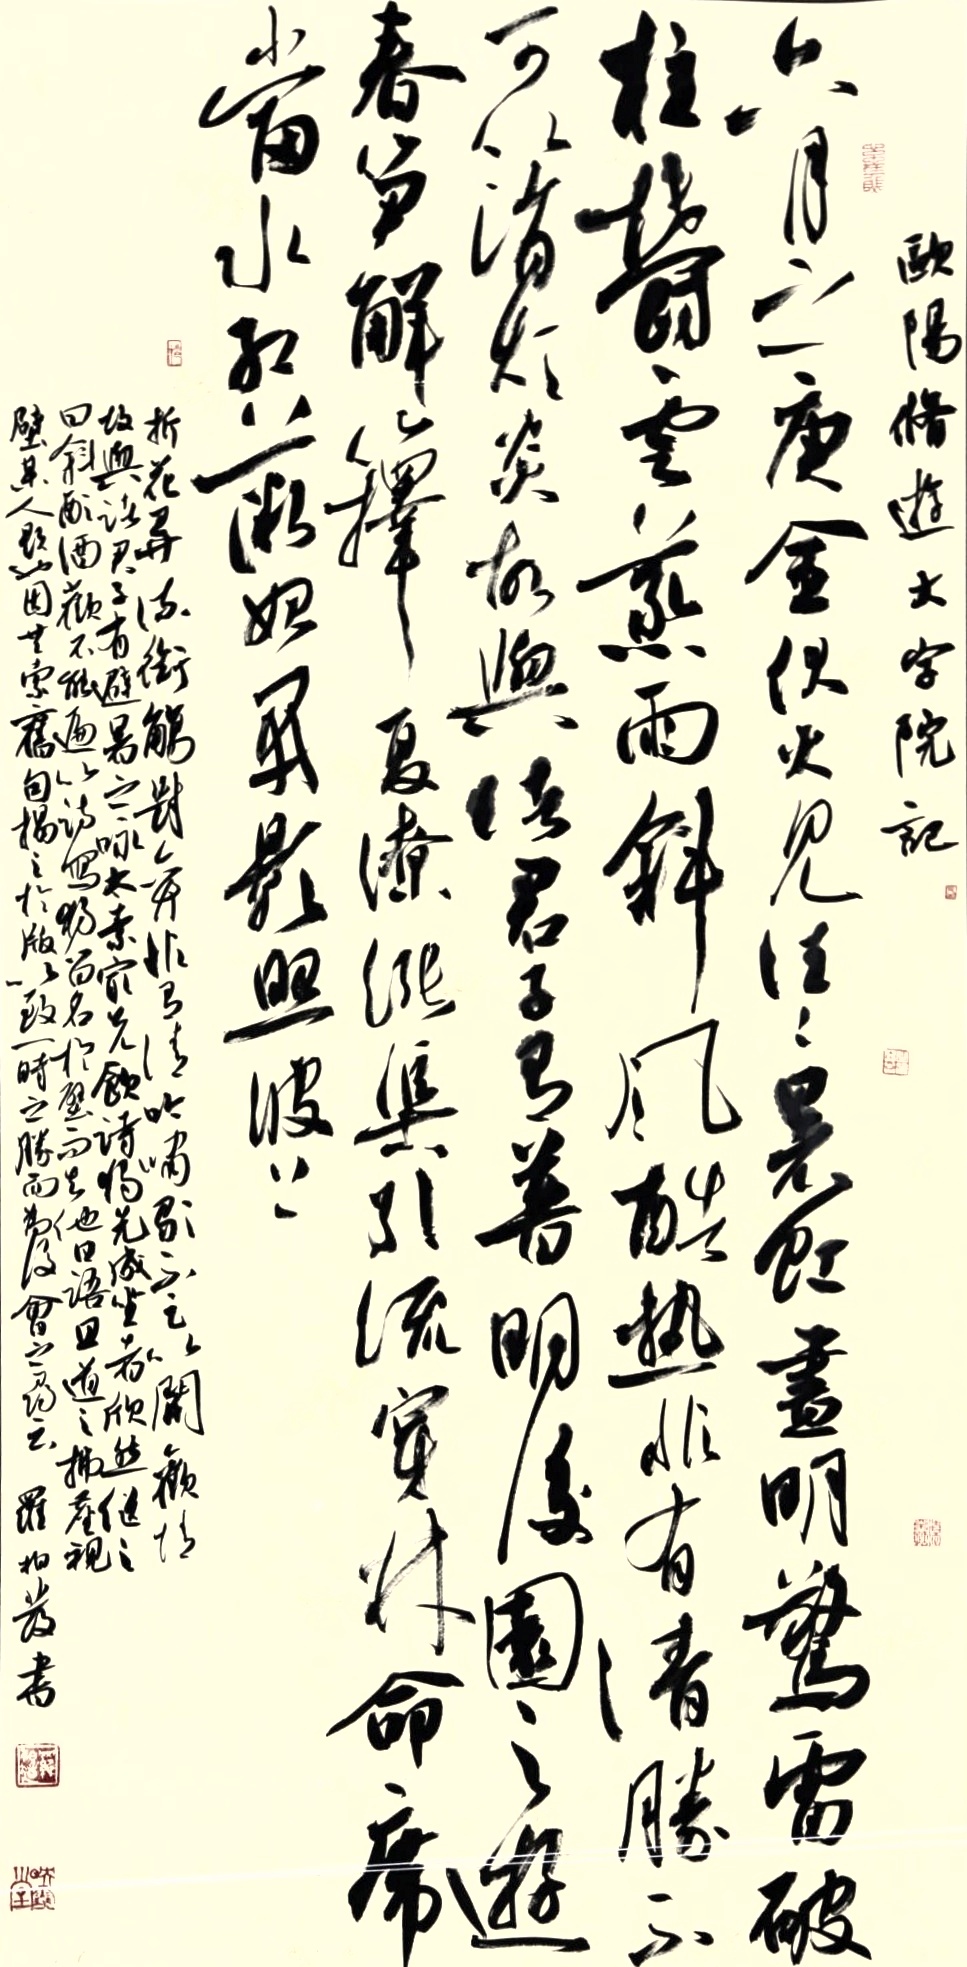 歐陽脩遊大字院記
六月之庚金伏火見往往暑虹晝明驚雷破
柱鬱雲蒸雨斜風酷熱非有清勝不
可以消煩炎故與諸君子有普明後園之遊
春笋解籜夏潦漲渠引流穿林命席
當水紅薇始開影照波上
折花弄流銜觴對弈非有清吟嘯歌不足以開歡情
故與諸君子有避暑之咏太素最少飲詩獨先成坐者欣然繼之
日斜酌酒歡不能遍以詩寫獨留名於壁而去他日語且道之拂塵視
壁某人題也因共索舊句揭之於版以致一時之勝而為後會之尋云 羅柏書